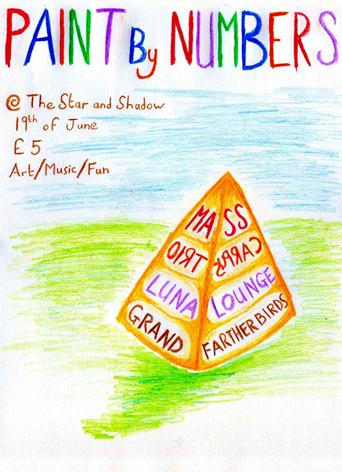 PAINT By NUMBERS
@ The Star and Shadow
19th of June
£5
Art/Music/Fun
MA SS
TRIO
LUNA LOUNGE
GRAND FARTHER BIRDS